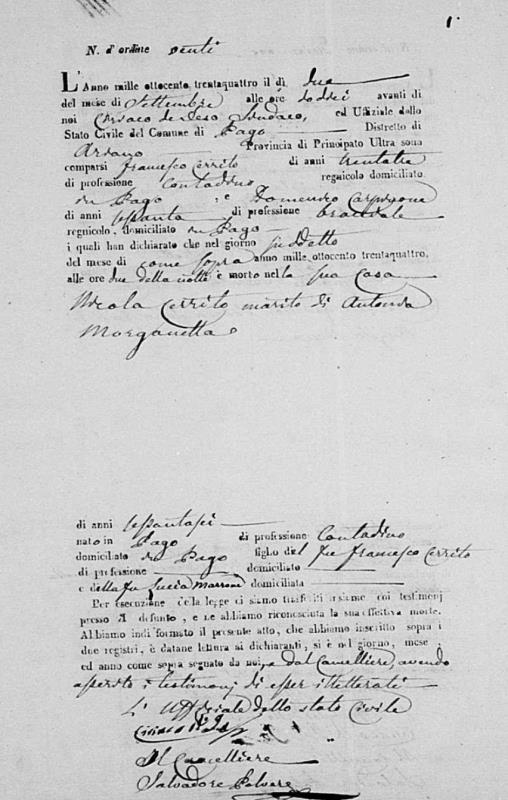 1
N. d'ordine venti
L'Anno mille ottocento trentaquattro il dì due
del mese di Settembre alle ore dodici avanti di
noi Ciriaco de Leso Sindaco, ed Uffiziale dello
Stato Civile del Comune di Pago Distretto di
Ariano Provincia di Principato Ultra sono
comparsi Francesco Cerrito di anni trentatre
di professione Contadino regnicolo domiciliato
in Pago, e Domenico Carpinone
di anni sessanta di professione bracciale
regnicolo, domiciliato in Pago
i quali han dichiarato che nel giorno suddetto
del mese di come sopra anno mille ottocento trentaquattro,
alle ore due della notte è morto nella sua Casa
Nicola Cerrito marito di Antonia
Morganella
di anni sessantasei
nato in Pago di professione Contadino
domiciliato in Pago figlio del fu Francesco Cerrito
di professione domiciliato
e della fu Lucia Marrone domiciliata
Per esecuzione della legge ci siamo trasferiti insieme coi testimonj
presso il defunto, e ne abbiamo riconosciuta la sua effettiva morte.
Abbiamo indi formato il presente atto, che abbiamo inscritto sopra i
due registri, e datane lettura ai dichiaranti, si è nel giorno, mese,
ed anno come sopra segnato da noi, e dal Cancelliere, avendo
asserito i testimonj di esser illetterati
L'Uffiziale dello stato Civile
Ciriaco
Il Cancelliere
Salvadore Polvere